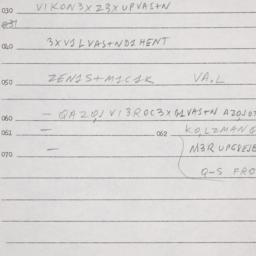 030 VIKON3XZ3XUPVAS+N
031
040 3XV1LVAS+NDIHENT
050 ZEN1S+M1C1K VA.L
060 — QAZQJVI3ROC3XG1VAS+N AZQJOT
061 — 062 KO,LZMANG
070 — M3RUPGVEJE
Q-S FRO